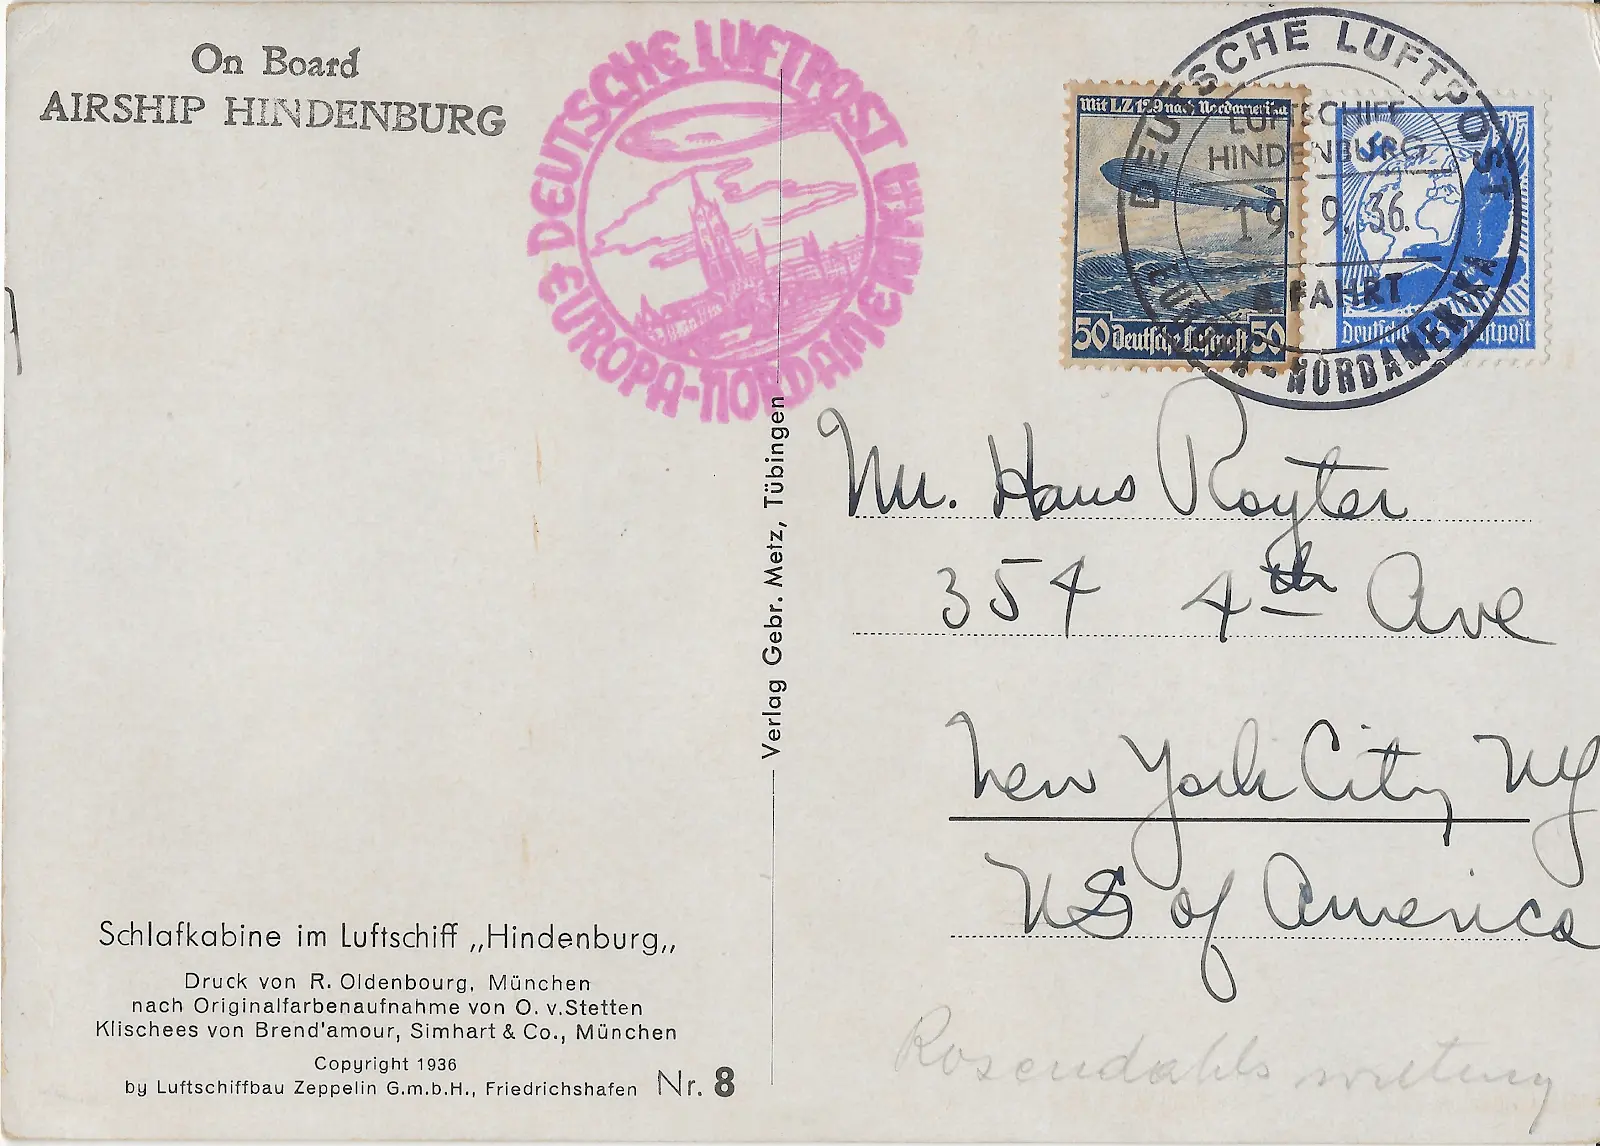 On Board
AIRSHIP HINDENBURG
DEUTSCHE LUFTPOST
EUROPA-NORDAMERIKA
Mit LZ 129 nach Nordamerika
50 Deutsche Luftpost 50
Deutsche Luftpost
DEUTSCHE LUFTPOST
LUFTSCHIFF
HINDENBURG
19. 9. 36.
FAHRT
EUROPA-NORDAMERIKA
Mr. Hans Royter
354 4th Ave
New York City NY
US of America
Rosendahls
Verlag Gebr. Metz, Tübingen
Schlafkabine im Luftschiff „Hindenburg„
Druck von R. Oldenbourg, München
nach Originalfarbenaufnahme von O. v.Stetten
Klischees von Brend'amour, Simhart & Co., München
Copyright 1936
by Luftschiffbau Zeppelin G.m.b.H., Friedrichshafen Nr. 8